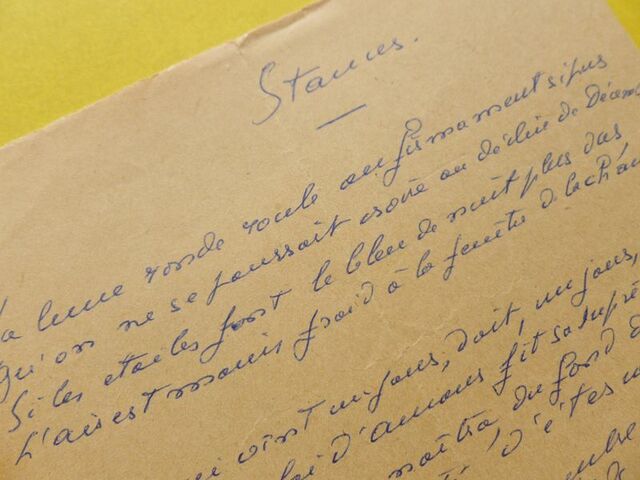 Stances.
La lune ronde roule au firmament si pur
Qu'on ne se pourrait croire au déclin de Décem
Si les étoiles font le bleu de nuit plus dur
L'air est moins froid à la fenêtre de la cham
vint un jour, doit, un jour,
d'amour fit sa
naître du fond d